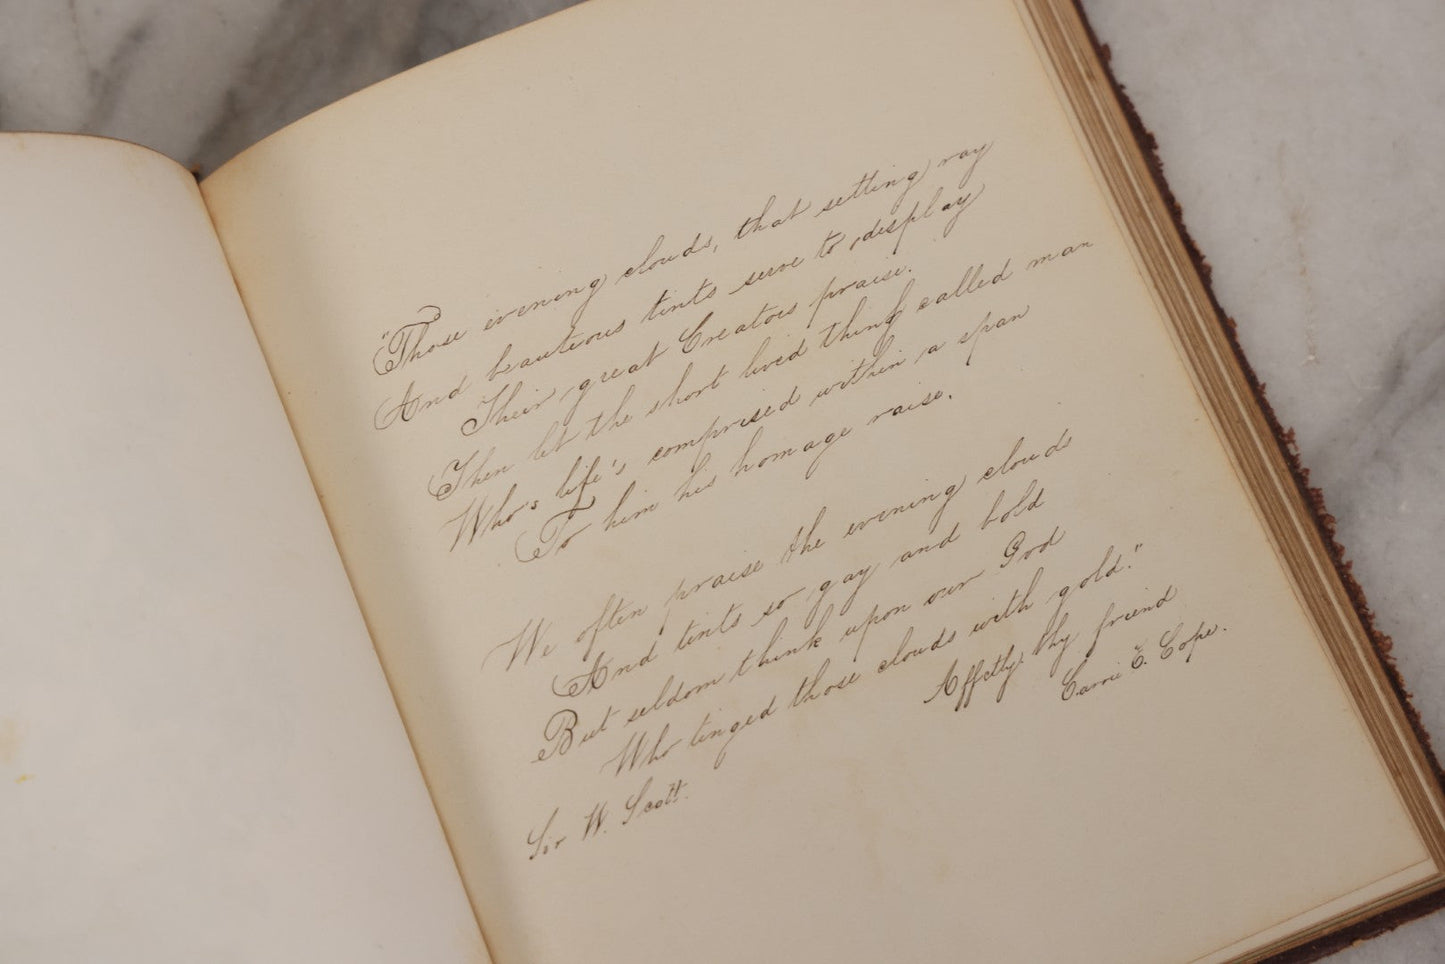 "Those evening clouds, that setting ray
And beauteous tints serve to display
Their great Creators praise.
Then let the short lived thing called man
Who's life's comprised within a span
To him his homage raise.
We often praise the evening clouds
And tints so gay and bold
But seldom think upon our God
Who tinged those clouds with gold."
Affctly thy friend
Carrie E. Cope.
Sir W. Scott.